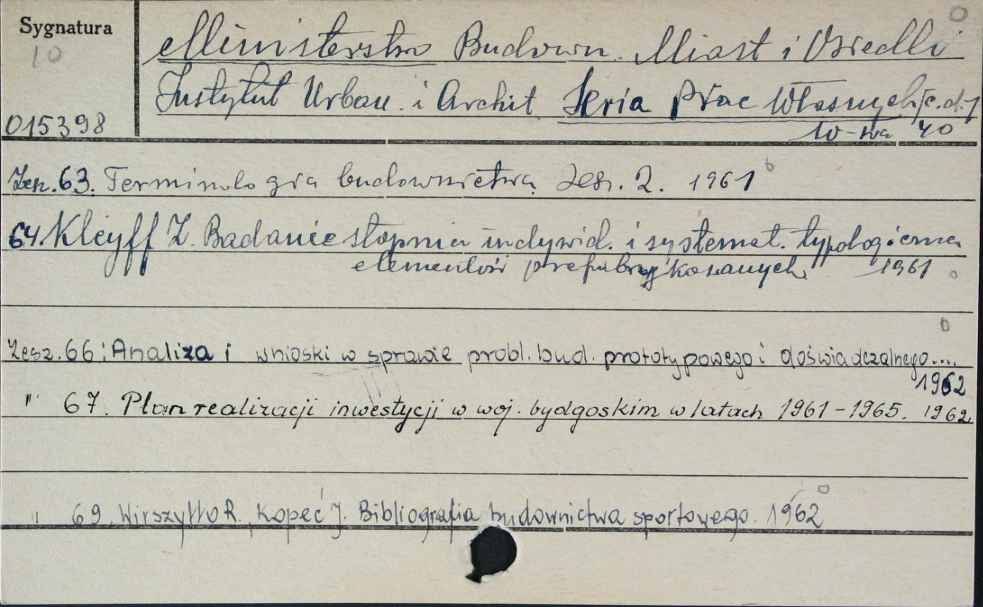 Sygnatura
10
015398
Ministerstwo Budown. Miast i Osiedli
Instytut Urban. i Archit. Seria Prac Własnych /c.d./
W-wa 40
Zesz. 63. Terminologia budownictwa Zesz. 2. 1961
64. Kleyff Z. Badanie stopnia indywid. i systemat. typologiczna
elementów prefabrykowanych 1961
Zesz. 66: Analiza i wnioski w sprawie probl. bud. prototypowego i doświadczalnego....
1962
" 67. Plan realizacji inwestycji w woj. bydgoskim w latach 1961-1965. 1962
" 69. Wirszyłło R. Kopeć J. Bibliografia budownictwa sportowego. 1962